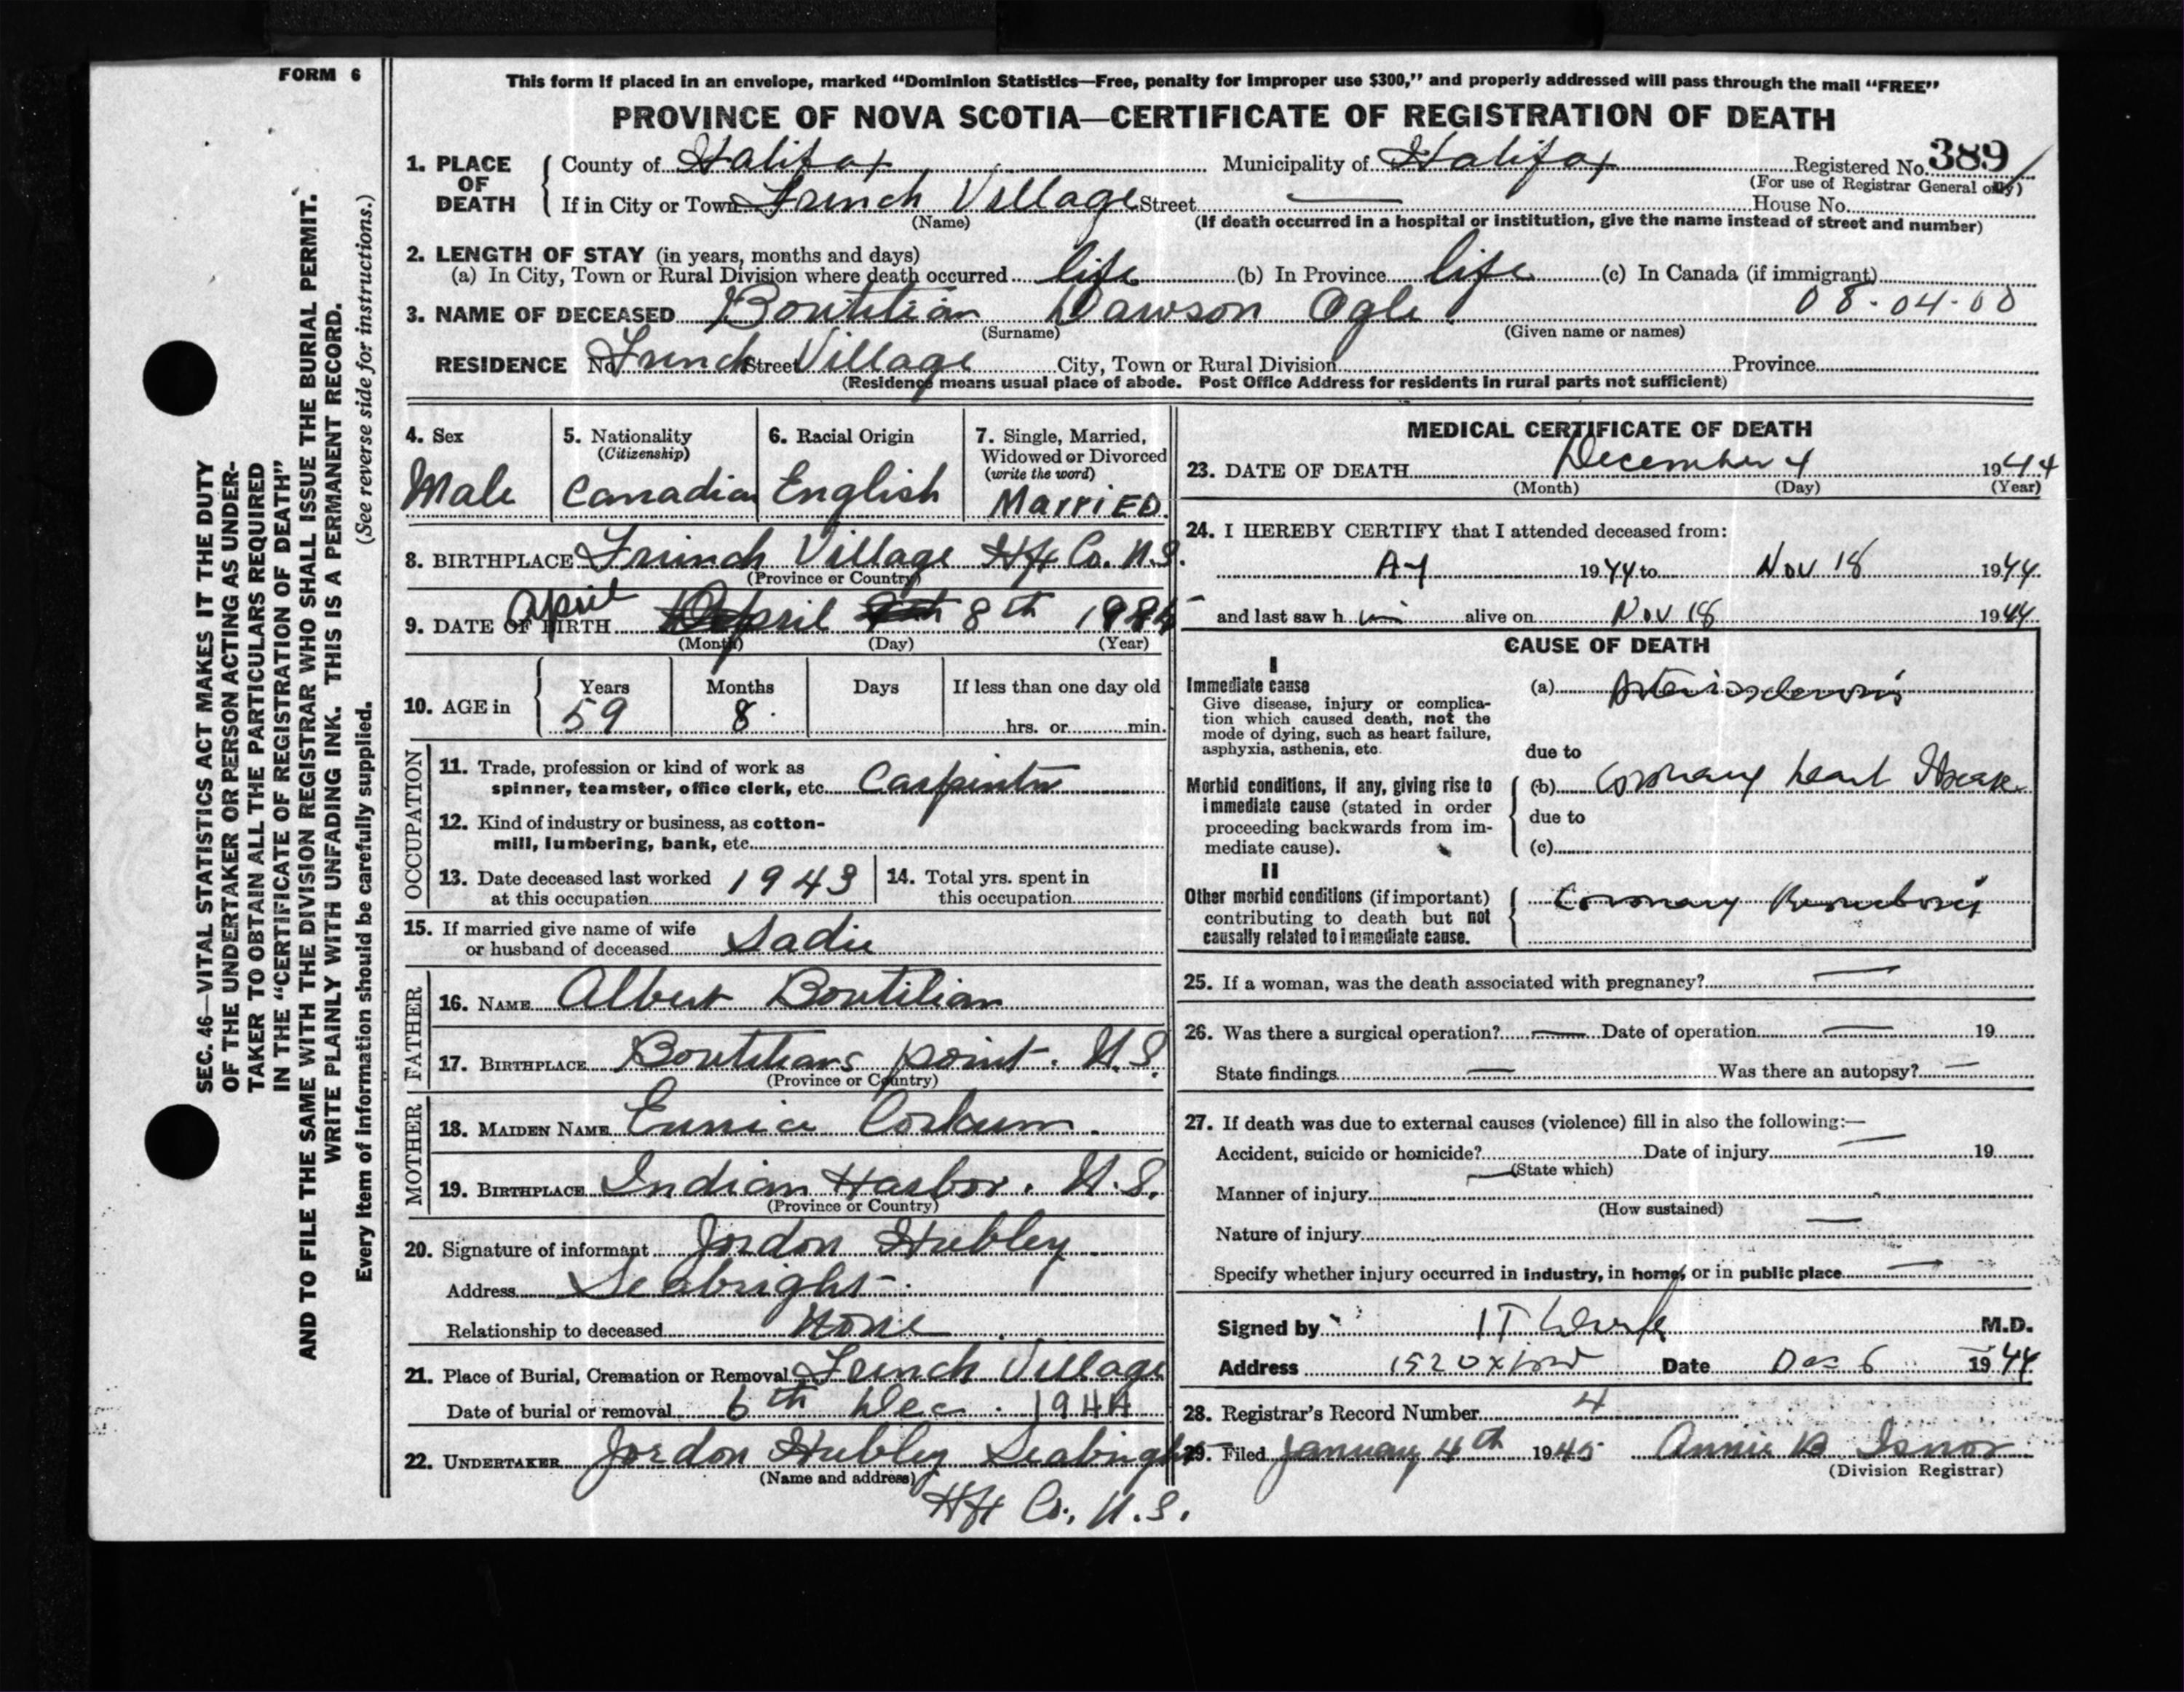 FORM 6
This form if placed in an envelope, marked “Dominion Statistics—Free, penalty for improper use $300,” and properly addressed will pass through the mail “FREE”
PROVINCE OF NOVA SCOTIA—CERTIFICATE OF REGISTRATION OF DEATH
SEC. 46—VITAL STATISTICS ACT MAKES IT THE DUTY
OF THE UNDERTAKER OR PERSON ACTING AS UNDER-
TAKER TO OBTAIN ALL THE PARTICULARS REQUIRED
IN THE “CERTIFICATE OF REGISTRATION OF DEATH”
AND TO FILE THE SAME WITH THE DIVISION REGISTRAR WHO SHALL ISSUE THE BURIAL PERMIT.
WRITE PLAINLY WITH UNFADING INK. THIS IS A PERMANENT RECORD.
Every item of information should be carefully supplied. (See reverse side for instructions.)
1. PLACE OF DEATH
County of Halifax Municipality of Halifax Registered No. 389
(For use of Registrar General only)
If in City or Town French Village Street — House No.
(Name) (If death occurred in a hospital or institution, give the name instead of street and number)
2. LENGTH OF STAY (in years, months and days)
(a) In City, Town or Rural Division where death occurred life (b) In Province life (c) In Canada (if immigrant)
08-04-00
3. NAME OF DECEASED Boutilian Dawson Ogle
(Surname) (Given name or names)
RESIDENCE No. French Street Village City, Town or Rural Division Province
(Residence means usual place of abode. Post Office Address for residents in rural parts not sufficient)
4. Sex
Male
5. Nationality
(Citizenship)
Canadian
6. Racial Origin
English
7. Single, Married,
Widowed or Divorced
(write the word)
MarriED.
8. BIRTHPLACE French Village Hfx Co. N.S.
(Province or Country)
April
9. DATE OF BIRTH April 8th 1885
(Month) (Day) (Year)
10. AGE in
Years Months Days If less than one day old
59 8 hrs. or min.
OCCUPATION
11. Trade, profession or kind of work as
spinner, teamster, office clerk, etc. Carpenter
12. Kind of industry or business, as cotton-
mill, lumbering, bank, etc.
13. Date deceased last worked
at this occupation 1943
14. Total yrs. spent in
this occupation
15. If married give name of wife
or husband of deceased Sadie
FATHER
16. NAME Albert Boutilian
17. BIRTHPLACE Boutilians point. N.S.
(Province or Country)
MOTHER
18. MAIDEN NAME Eunice Corkum.
19. BIRTHPLACE Indian Harbor. N.S.
(Province or Country)
20. Signature of informant Jordon Hubley
Address Seabright.
Relationship to deceased None
21. Place of Burial, Cremation or Removal French Village
Date of burial or removal 6th Dec. 1944
22. UNDERTAKER Jordon Hubley Seabright
(Name and address)
Hfx Co., N.S.
MEDICAL CERTIFICATE OF DEATH
23. DATE OF DEATH December 4 1944
(Month) (Day) (Year)
24. I HEREBY CERTIFY that I attended deceased from:
1944 to Nov 18 1944
and last saw h im alive on Nov 18 1944
CAUSE OF DEATH
I
Immediate cause
Give disease, injury or complica-
tion which caused death, not the
mode of dying, such as heart failure,
asphyxia, asthenia, etc.
(a) Arteriosclerosis
due to
Morbid conditions, if any, giving rise to
immediate cause (stated in order
proceeding backwards from im-
mediate cause).
(b) Coronary heart disease
due to
(c)
II
Other morbid conditions (if important)
contributing to death but not
causally related to immediate cause.
Coronary thrombosis
25. If a woman, was the death associated with pregnancy? —
26. Was there a surgical operation? — Date of operation — 19
State findings — Was there an autopsy? —
27. If death was due to external causes (violence) fill in also the following:—
Accident, suicide or homicide? Date of injury — 19
(State which)
Manner of injury —
(How sustained)
Nature of injury —
Specify whether injury occurred in industry, in home, or in public place —
Signed by M.D.
Address 152 Oxford Date Dec 6 1944
28. Registrar's Record Number 4
29. Filed January 4th 1945 Annie B Isnor
(Division Registrar)